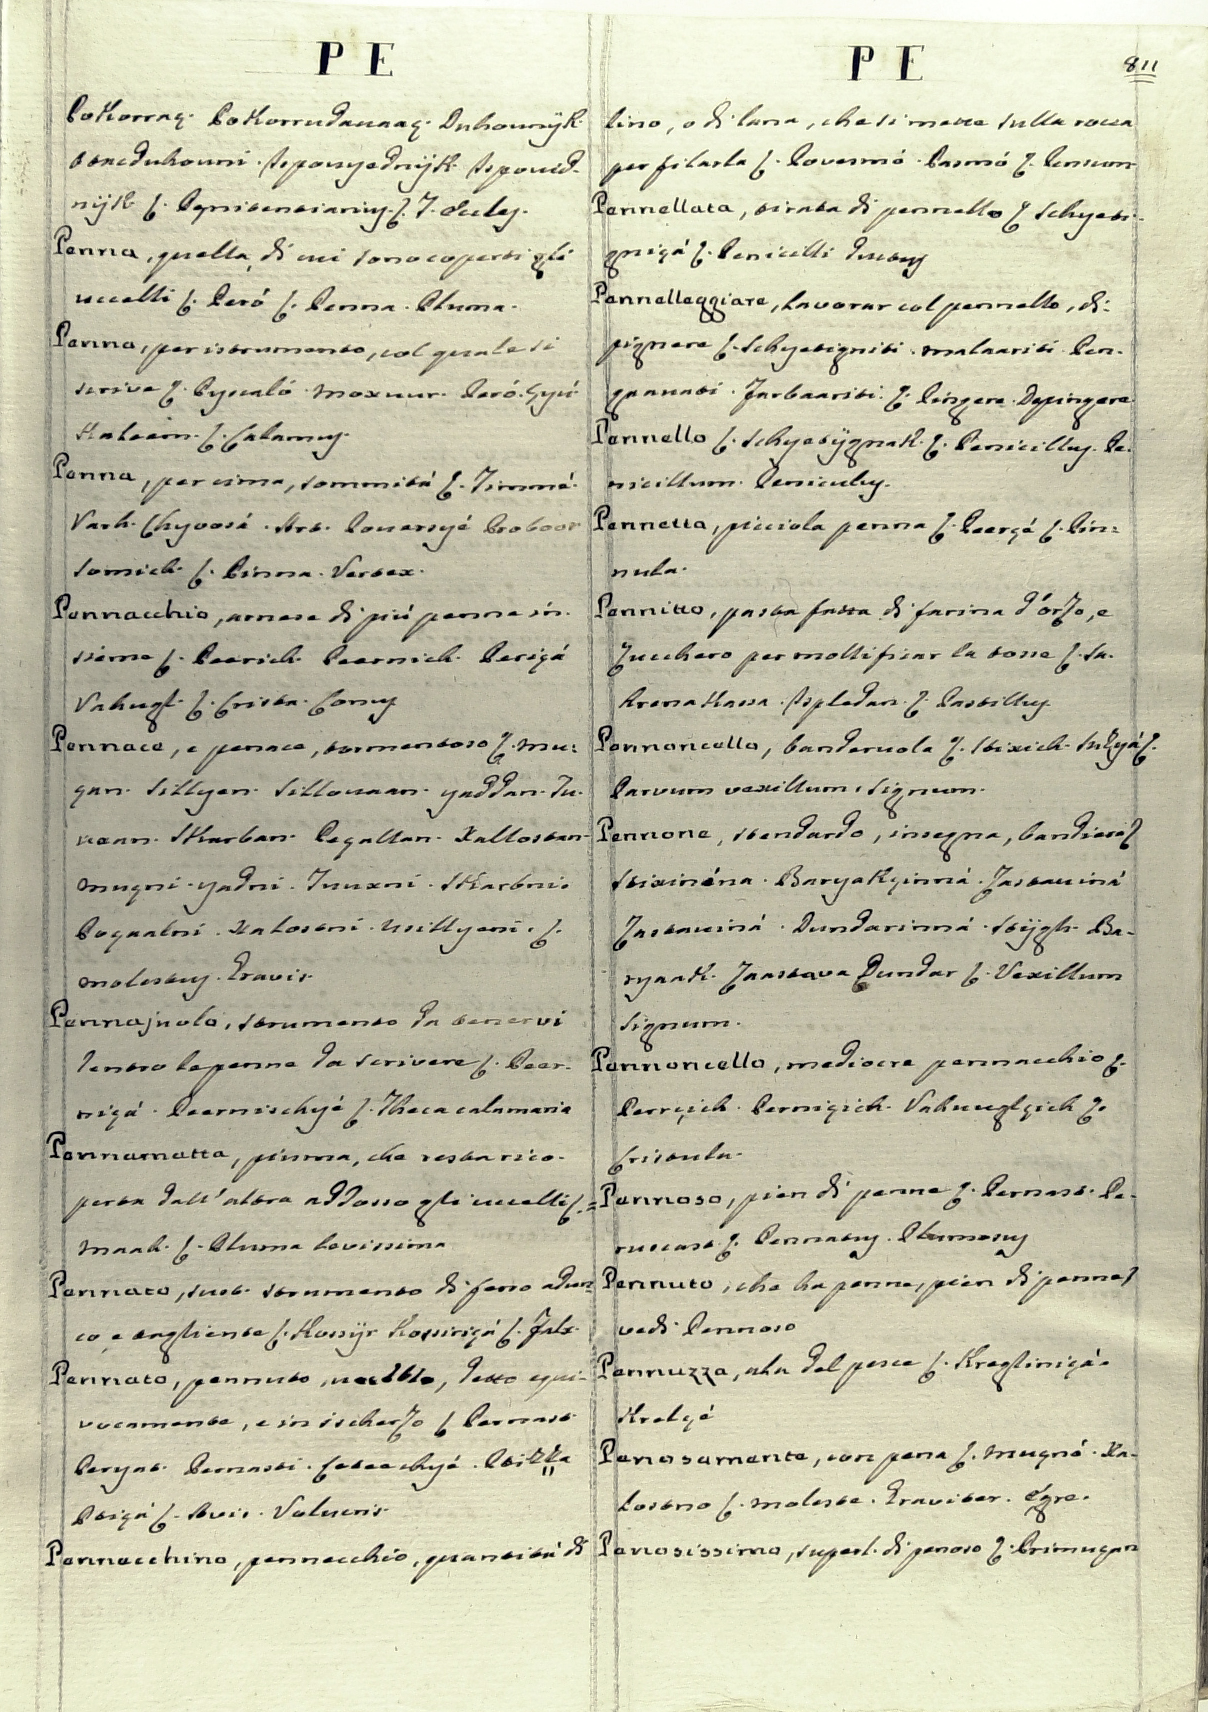 PE
Pokorraç. Pokorrudavaaç. Duhovnÿk.
Otacduhovni. Ispovyednÿk. Ispovid-
nÿk L. Pęnitentiarius.
Penna, quella, di cui sono coperti gli
uccelli I. Peró L. Penna. Pluma.
Penna, per istrumento, col quale si
scrive I. Pyssaló. Moxuur. Peró.
Kalaam. L. Calamus.
Penna, per cima, sommitá I. Timmé.
Varh. Poversyé
L. Pinna. Vertex.
Pennacchio, arnese di piú penne in-
sieme I. Peerich. Peernich. Periçá
L. Crista. Conus
Pennace, e penace, tormentoso I. Mu-
çan. Sillyen. Sillovaan. yaddan. Tu-
xan. Skarban. Peçallan. Xallostan
Muçni. yadni. Tuuxni. Skarbni.
Peçaalni. Xalostni. Usillyeni. L.
Molestus. Gravis.
Pennajuolo, strumento da tenervi
dentro le penne da scrivere I. Peer-
niçá. Peernischyé L. Theca calamaria
Pennamatta, piuma, che resta rico-
perta dall'altra addosso gli uccelli I.
Maah. L. Pluma levissima
Pennato, sust. strumento di ferro adun-
co, e tagliente I. Kossÿr Kossiriçá L. Falx.
Pennato, pennuto, uccello, detto equi-
vocamente, e in ischerzo I. Pernast
Peryat. Pernasti.
Ptiçá L. Avis. Volucris
Pennacchino, pennecchio, quantitá di
PE
811
lino, o di lana, che si mette sulla rocca
per filarla I. Povesmó. Pasmó L. Pensum
Pennellata, tirata di pennello I. Schyeti-
gniçá L. Penicilli ductus
Pennelleggiare, lavorar col pennello, di-
pignere I. Schyetigniti. Malaariti. Pen-
gaavati. Farbaariti. L. Pingere. Depingere
Pennello I. Schyetÿgnak. L. Penicillus. Pe-
nicillum. Peniculus.
Pennetta, picciola penna I. Peerçé L. Pin-
nula.
Pennitto, pasta fatta di farina d'orzo, e
Zucchero per mollificar la tosse I.
L. Pastillus
Pennoncello, banderuola I. Stixich. L.
Parvum vexillum, Signum.
Pennone, stendardo, insegna, bandiera I.
Stixinéna. Baryakçinná. Zastaviná
Zastaviná. Dundarinná. Stÿgh. Ba-
ryaak. Zaastava Dundar L. Vexillum
Signum.
Pennoncello, mediocre pennacchio I.
Perrçich. Perniçich. L.
Cristula.
Pennoso, pien di penne I. Pernast. Pe-
L. Pennatus. Plumosus
Pennuto, che ha penne, pien di penne I.
vedi Pennoso
Pennuzza, ala del pesce I. Kreglniçá.
Krelçé
Penosamente, con pena I. Muçnó. Xa-
lostno L. Moleste. Graviter. Ęgre.
Penosissimo, superl. di penoso I. Primuçan